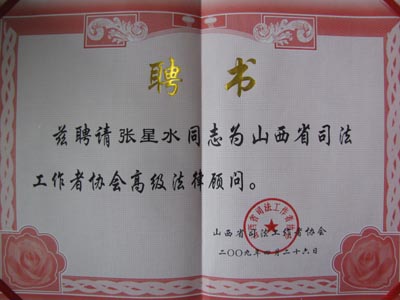 聘书
兹聘请张星水同志为山西省司法
工作者协会高级法律顾问。
山西省司法工作者协会
二〇〇九年 月二十六日